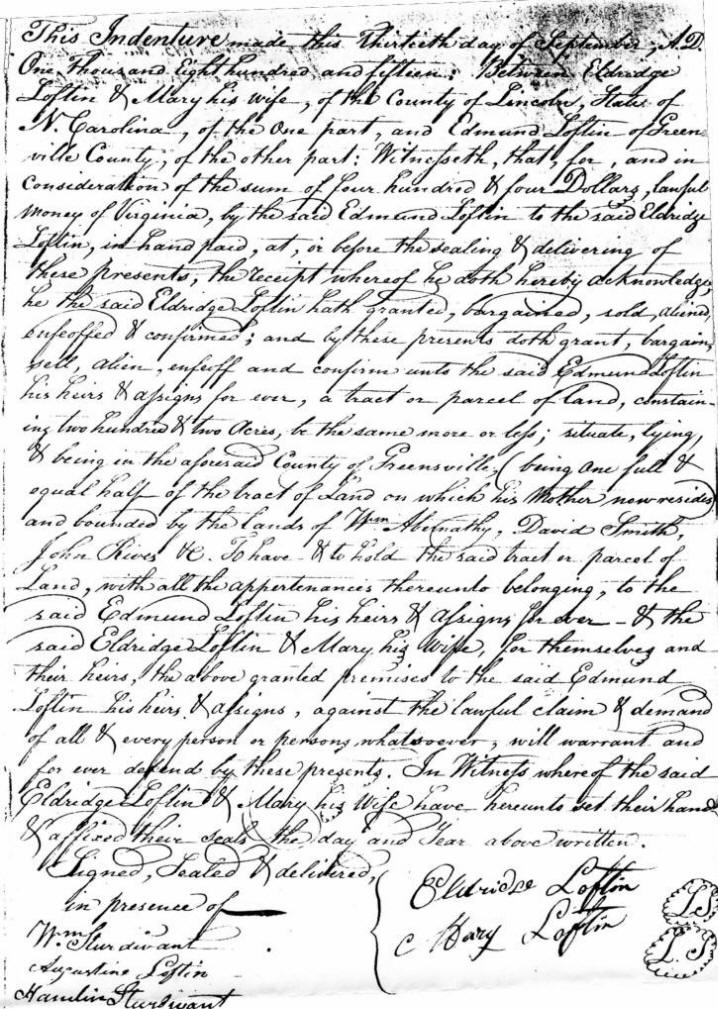 This Indenture made this thirtieth day of September, A.D.
One thousand Eight hundred and fifteen: Between Eldridge
Loftin & Mary his wife, of the County of Lincoln, State of
N. Carolina, of the One part, and Edmund Loftin of Green-
ville County, of the other part: Witnesseth, that, for, and in
consideration of the sum of four hundred & four Dollars, lawful
money of Virginia, by the said Edmund Loftin to the said Eldridge
Loftin, in hand paid, at, or before the sealing & delivering of
these presents, the receipt whereof he doth hereby acknowledge,
he the said Eldridge Loftin hath granted, bargained, sold, aliened,
enfeoffed & confirmed; and by these presents doth grant, bargain,
sell, alien, enfeoff and confirm unto the said Edmund Loftin
his heirs & assigns for ever, a tract or parcel of land, contain-
ing two hundred & two Acres, be the same more or less; situate, lying,
& being in the aforesaid County of Greensville, (being One full &
equal half of the tract of Land on which his Mother now resides)
and bounded by the lands of Wm Abernathy, David Smith,
John Rives &c. To have & to hold the said tract or parcel of
Land, with all the appertenances thereunto belonging, to the
said Edmund Loftin his heirs & assigns for ever - & the
said Eldridge Loftin & Mary his Wife, for themselves and
their heirs, the above granted premises to the said Edmund
Loftin his heirs & assigns, against the lawful claim & demand
of all & every person or persons whatsoever, will warrant and
for ever defend by these presents. In Witness whereof the said
Eldridge Loftin & Mary his Wife have hereunto set their hands
& affixed their seals the day and Year above written.
Signed, Sealed & delivered,
in presence of
Wm Sturdivant
Augustine Loftin
Hamlin Sturdivant
Eldridge Loftin L.S
Mary Loftin L.S